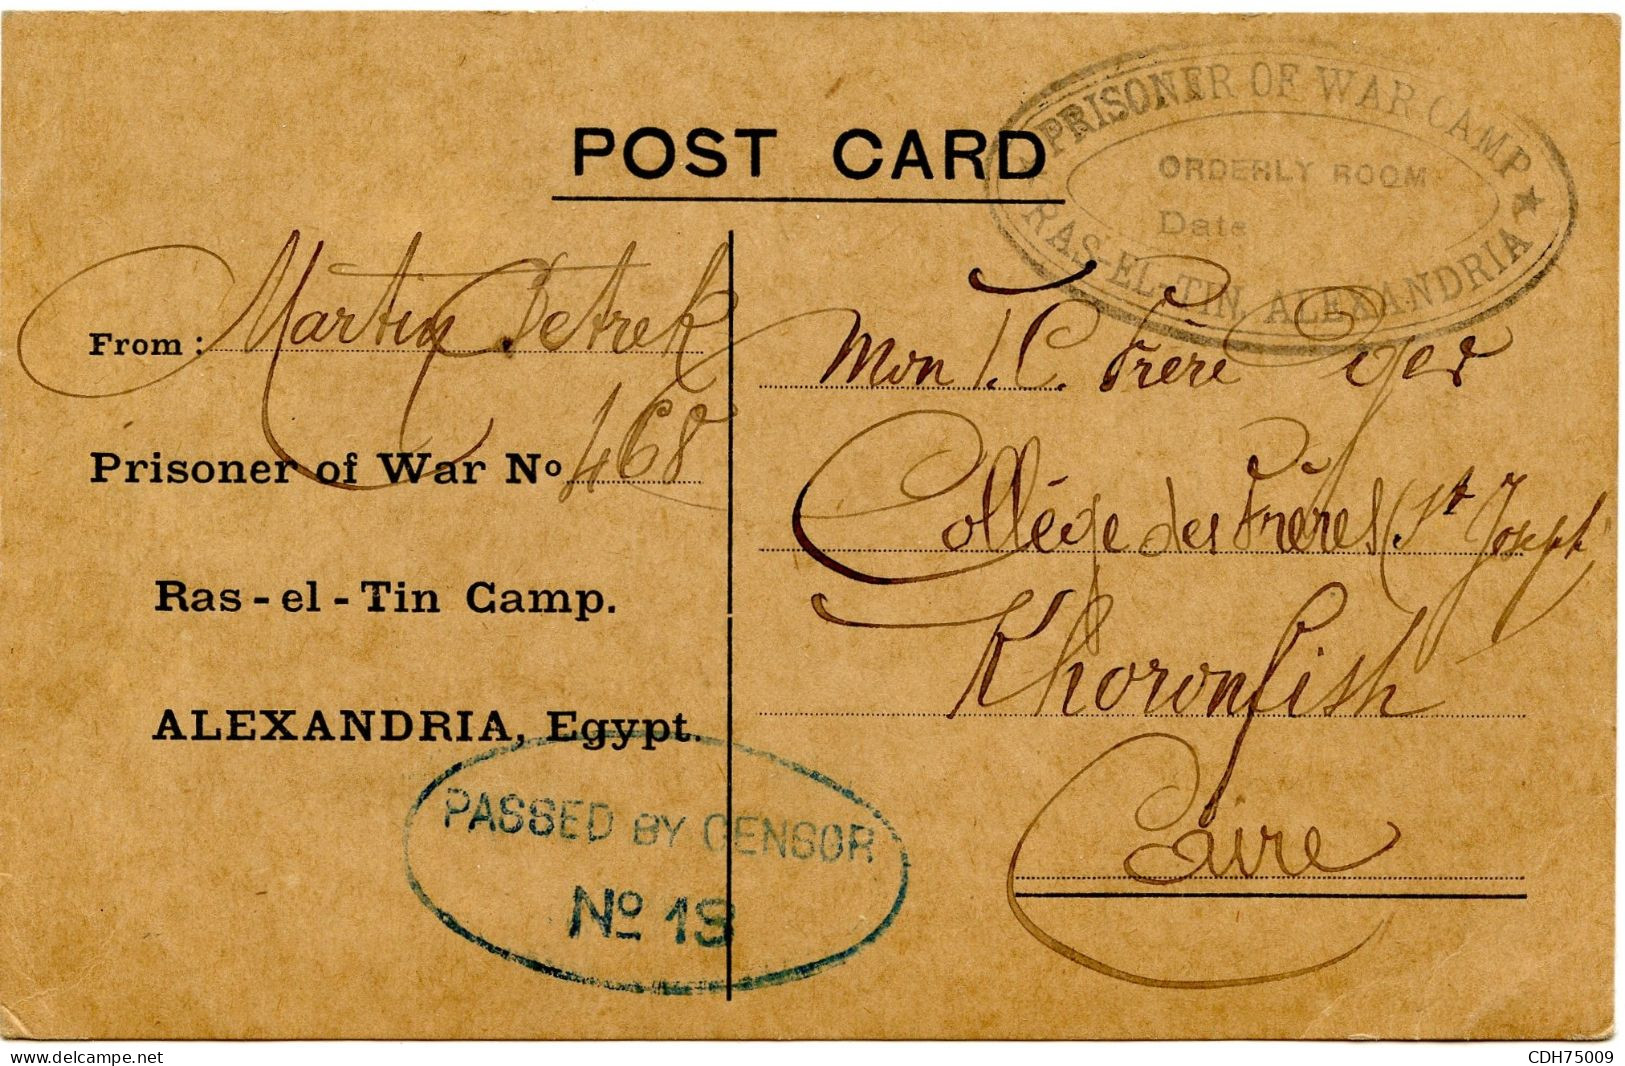 POST CARD
★ PRISONER OF WAR CAMP ★
ORDERLY ROOM
Date
RAS-EL-TIN, ALEXANDRIA
From: Martin Detrek
Prisoner of War No 468
Ras-el-Tin Camp.
ALEXANDRIA, Egypt.
PASSED BY CENSOR
No 13
Mon T. C. Frère
Collège des Frères (St Joseph)
Khoronfish
Caire
www.delcampe.net
CDH75009